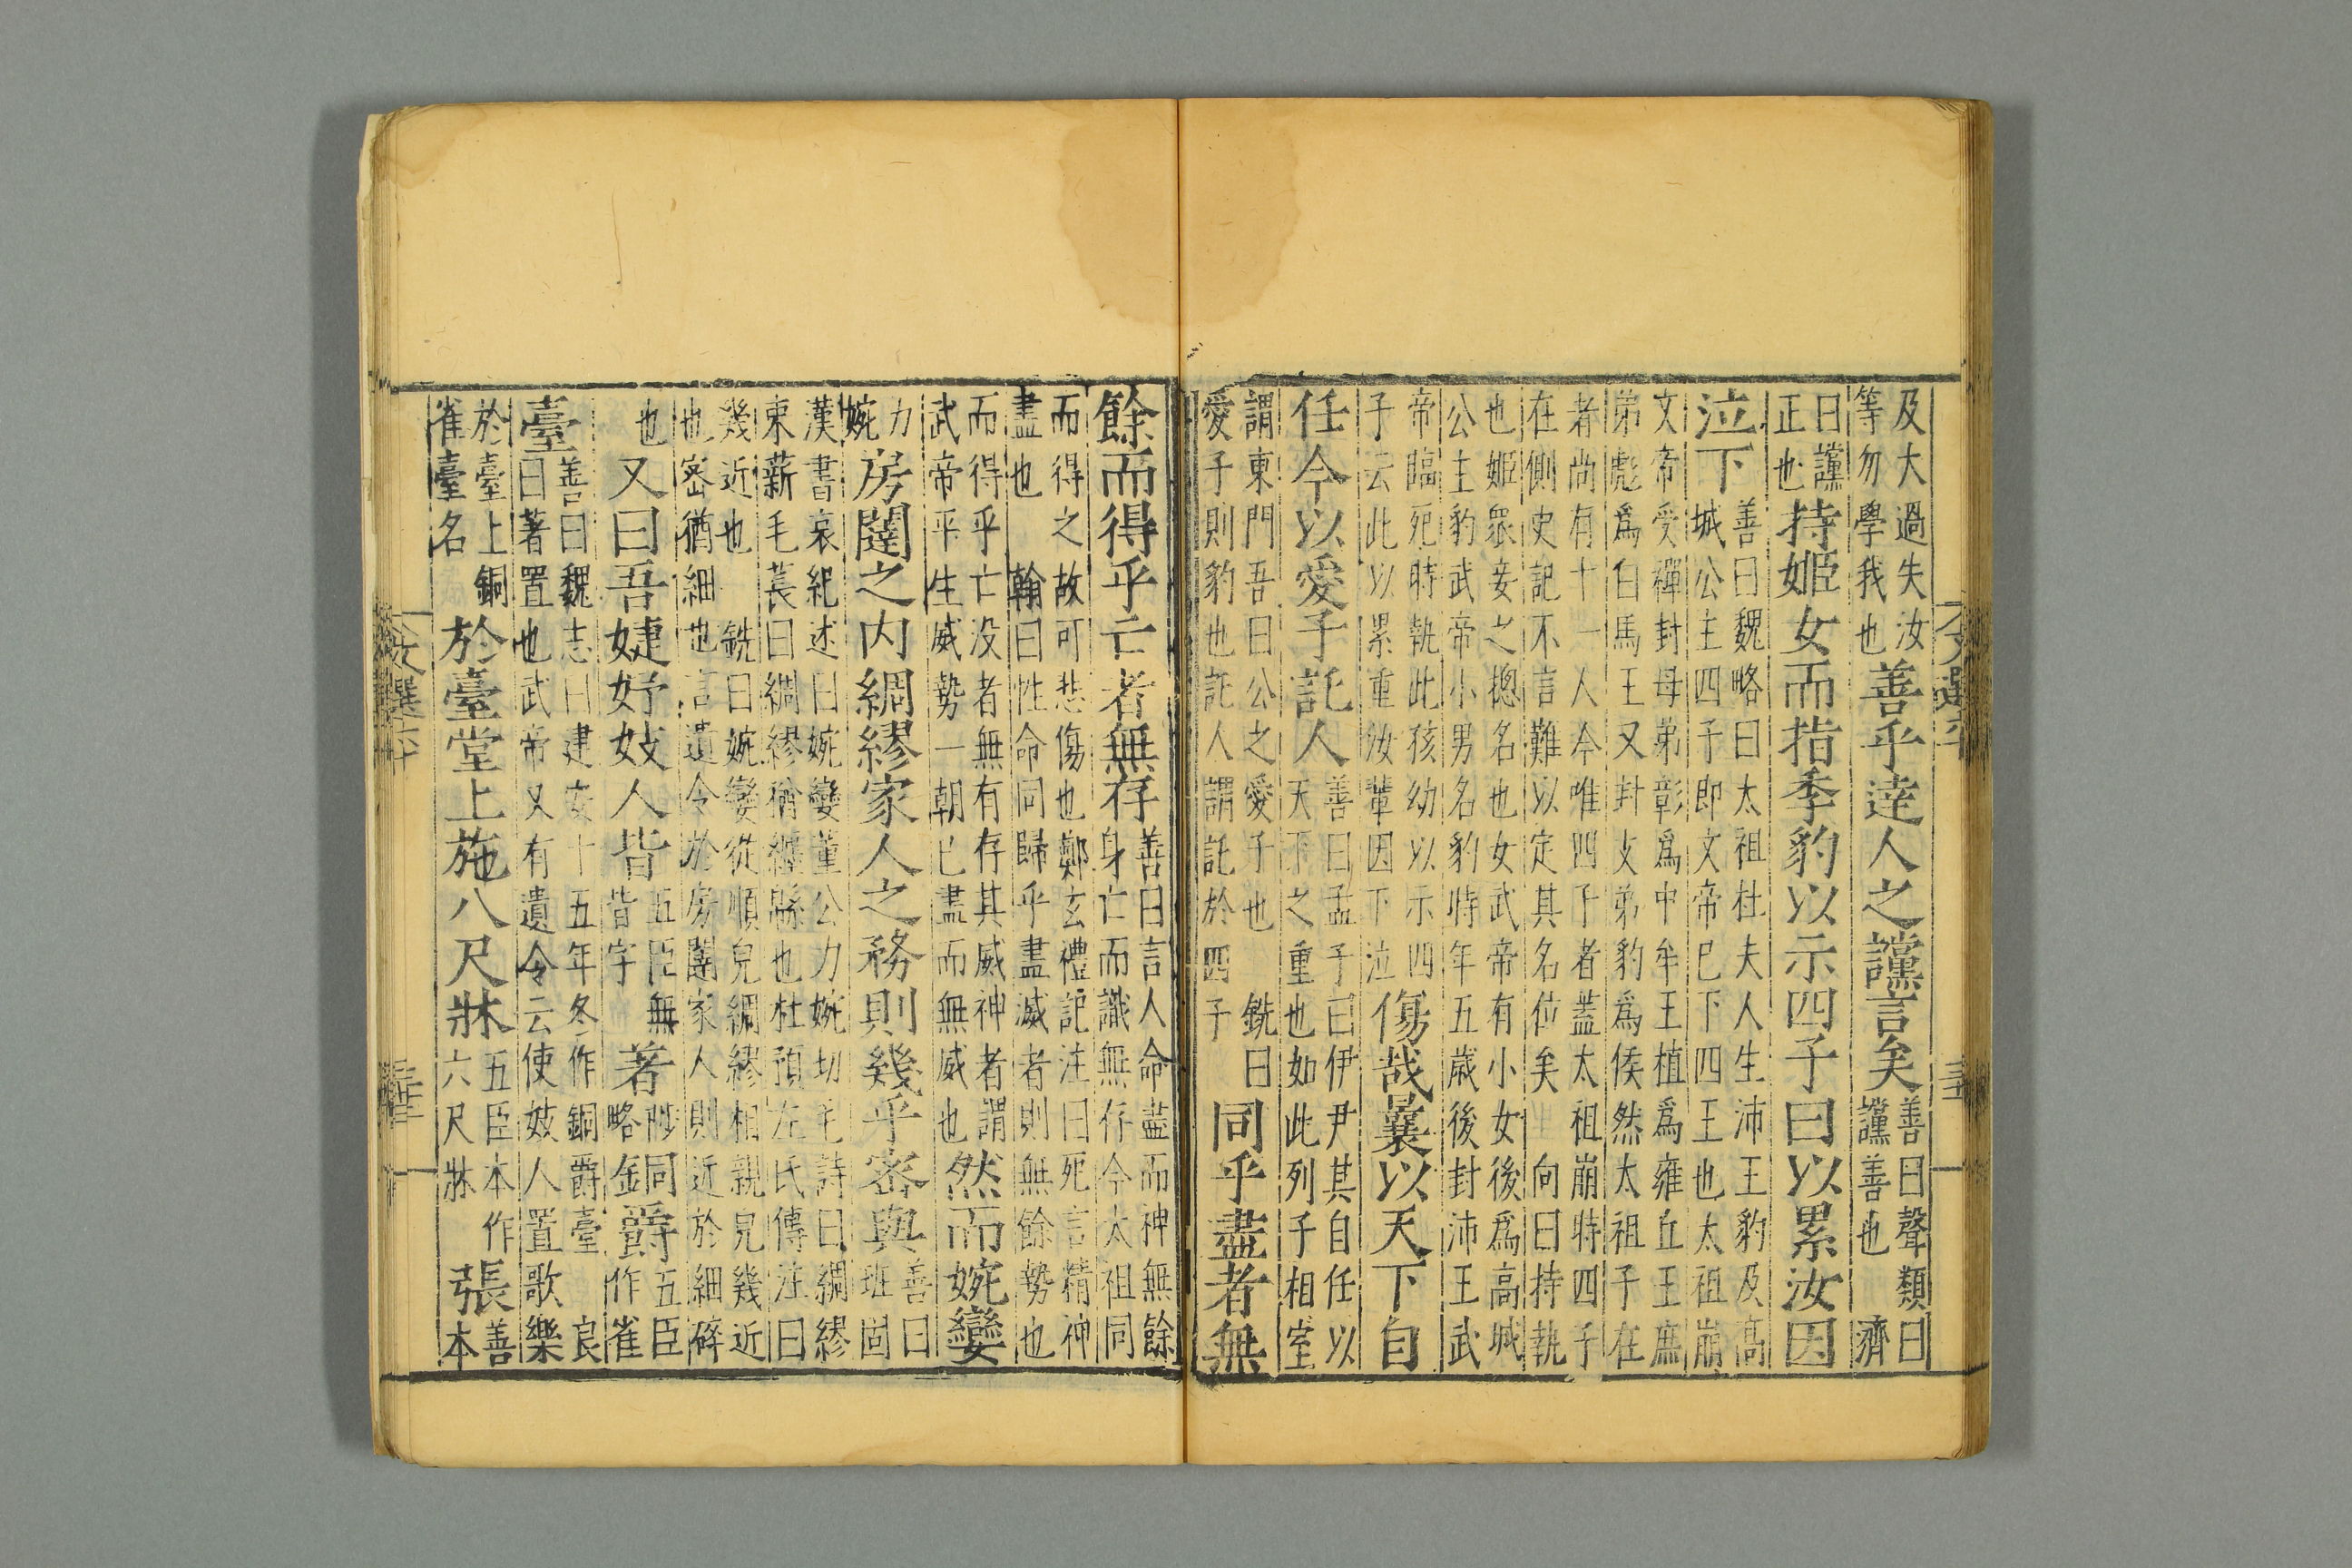 及大過失汝
等勿學我也善乎達人之讜言矣善曰聲類曰
讜善也　濟
曰讜
正也持姬女而指季豹以示四子曰以累汝因
泣下善曰魏略曰太祖杜夫人生沛王豹及高
城公主四子即文帝已下四王也太祖崩
文帝受禪封母弟彰爲中牟王植爲雍丘王庶
弟彪爲白馬王又封支弟豹爲侯然太祖子在
者尚有十一人今唯四子者蓋太祖崩時四子
在側史記不言難以定其名位矣　向曰持執
也姬衆妾之揔名也女武帝有小女後爲高城
公主豹武帝小男名豹時年五歲後封沛王武
帝臨死時執此孩幼以示四
子云此以累重汝輩因下泣傷哉曩以天下自
任今以愛子託人善曰孟子曰伊尹其自任以
天下之重也如此列子相室
謂東門吾曰公之愛子也　銑曰
愛子則豹也託人謂託於四子同乎盡者無
餘而得乎亡者無存善曰言人命盡而神無餘
身亡而識無存今太祖同
而得之故可悲傷也鄭玄禮記注曰死言精神
盡也　翰曰性命同歸乎盡滅者則無餘勢也
而得乎亡没者無有存其威神者謂
武帝平生威勢一朝已盡而無威也然而婉孌
房闥之内綢繆家人之務則幾乎密與善曰
班固
漢書哀紀述曰婉孌董公力婉切毛詩曰綢繆
束薪毛萇曰綢繆猶纏緜也杜預左氏傳注曰
幾近也　銑曰婉孌從順皃綢繆相親皃幾近
也密猶細也言遺令於房闥家人則近於細碎
也又曰吾婕妤妓人皆五臣無
皆字著陟
略銅爵五臣
作雀
臺善曰魏志曰建安十五年冬作銅爵臺　良
曰著置也武帝又有遺令云使妓人置歌樂
於臺上銅
雀臺名於臺堂上施八尺牀五臣本作
六尺牀張善
本